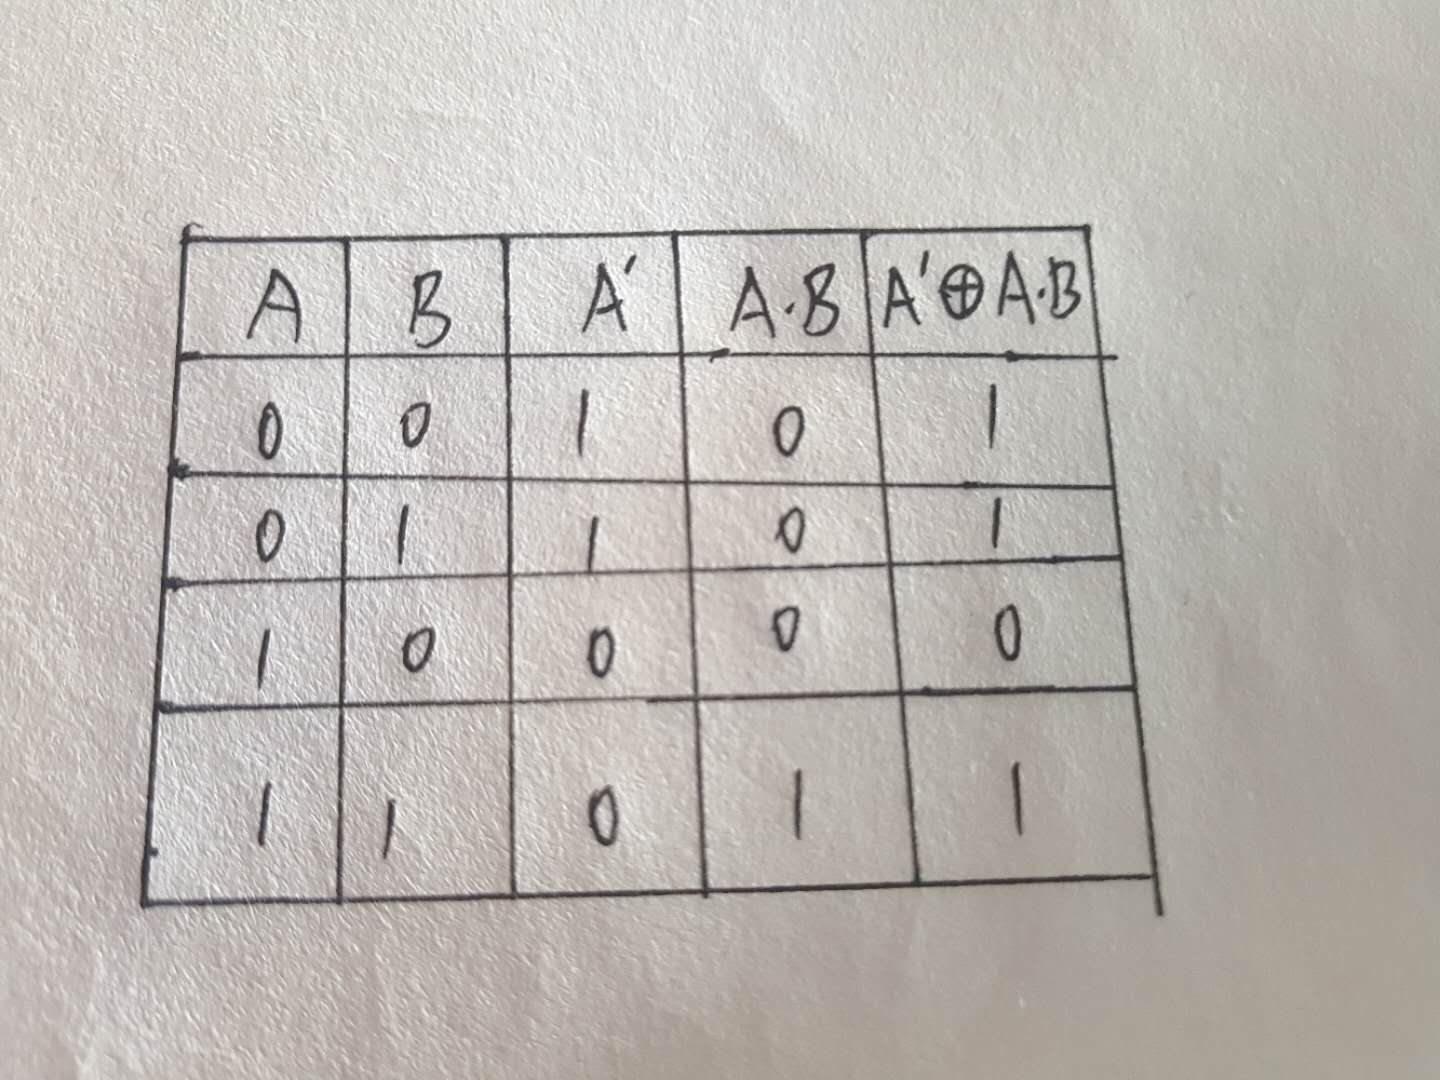 A B A′ A·B A′⊕A·B
0 0 1 0 1
0 1 1 0 1
1 0 0 0 0
1 1 0 1 1